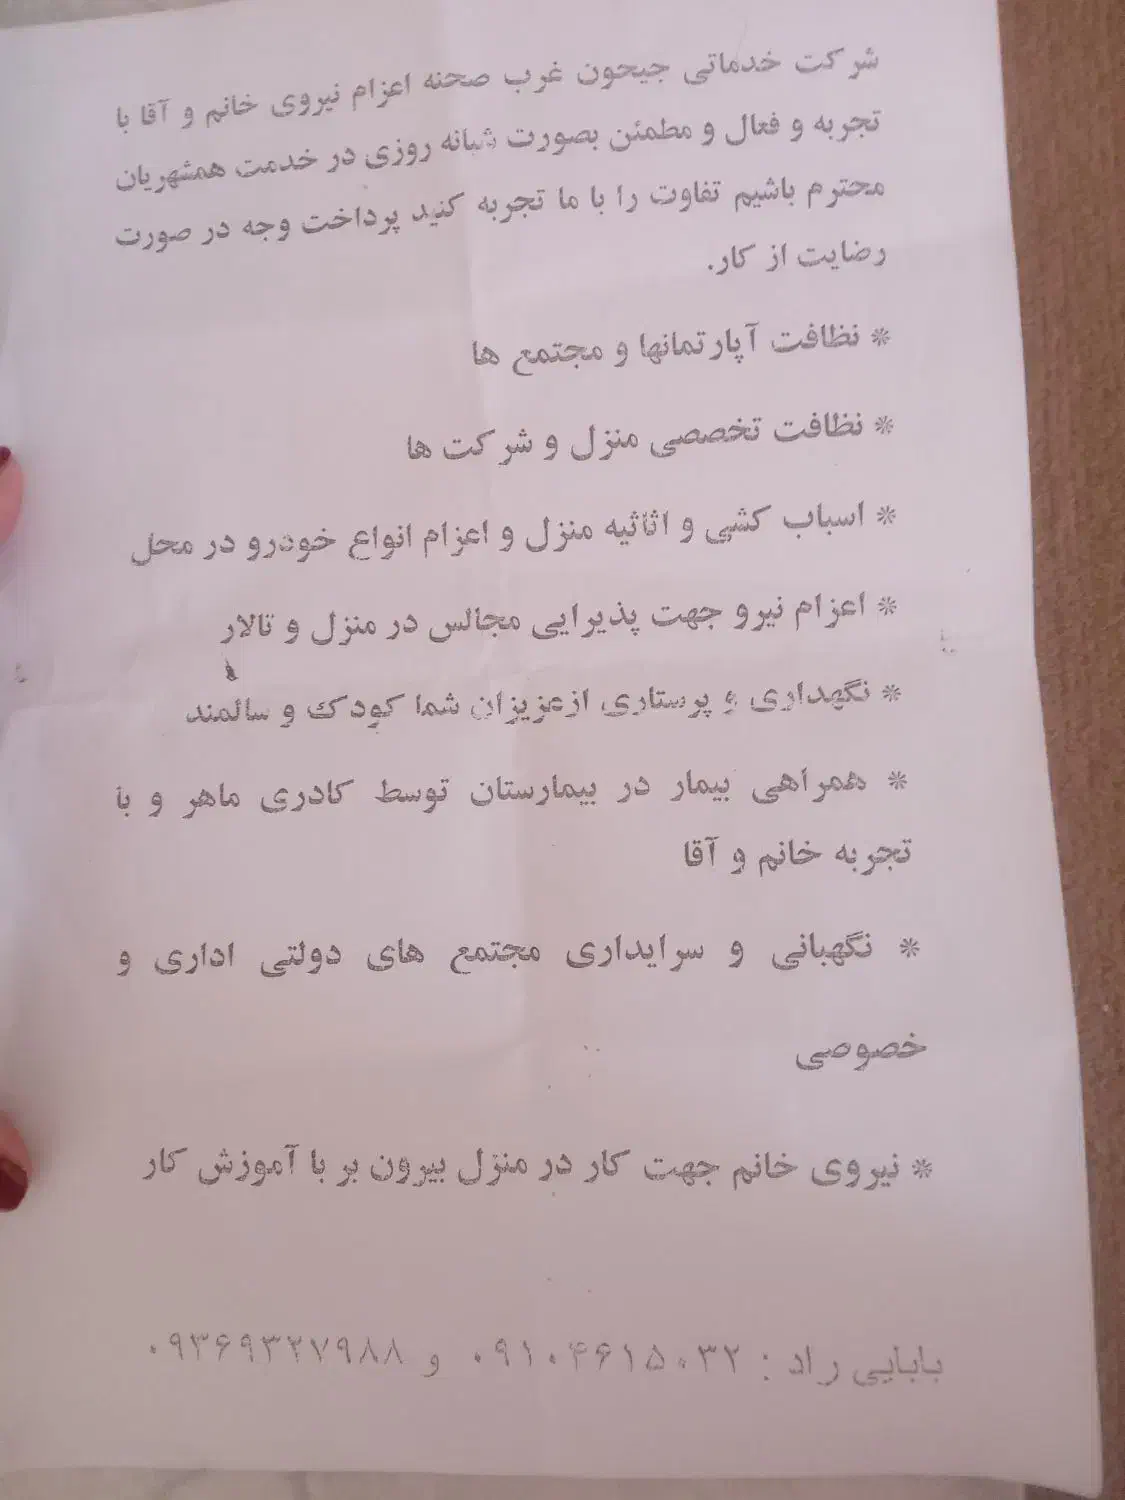 شرکت خدماتی جیحون غرب صحنه اعزام نیروی خانم و آقا با
تجربه و فعال و مطمئن بصورت شبانه روزی در خدمت همشهریان
محترم باشیم تفاوت را با ما تجربه کنید پرداخت وجه در صورت
رضایت از کار.
* نظافت آپارتمانها و مجتمع ها
* نظافت تخصصی منزل و شرکت ها
* اسباب کشی و اثاثیه منزل و اعزام انواع خودرو در محل
* اعزام نیرو جهت پذیرایی مجالس در منزل و تالار
* نگهداری و پرستاری از عزیزان شما کودک و سالمند
* همراهی بیمار در بیمارستان توسط کادری ماهر و با
تجربه خانم و آقا
* نگهبانی و سرایداری مجتمع های دولتی اداری و
خصوصی
* نیروی خانم جهت کار در منزل بیرون بر با آموزش کار
بابایی راد : ۰۹۱۰۴۶۱۵۰۳۲ و ۰۹۳۶۹۳۲۷۹۸۸